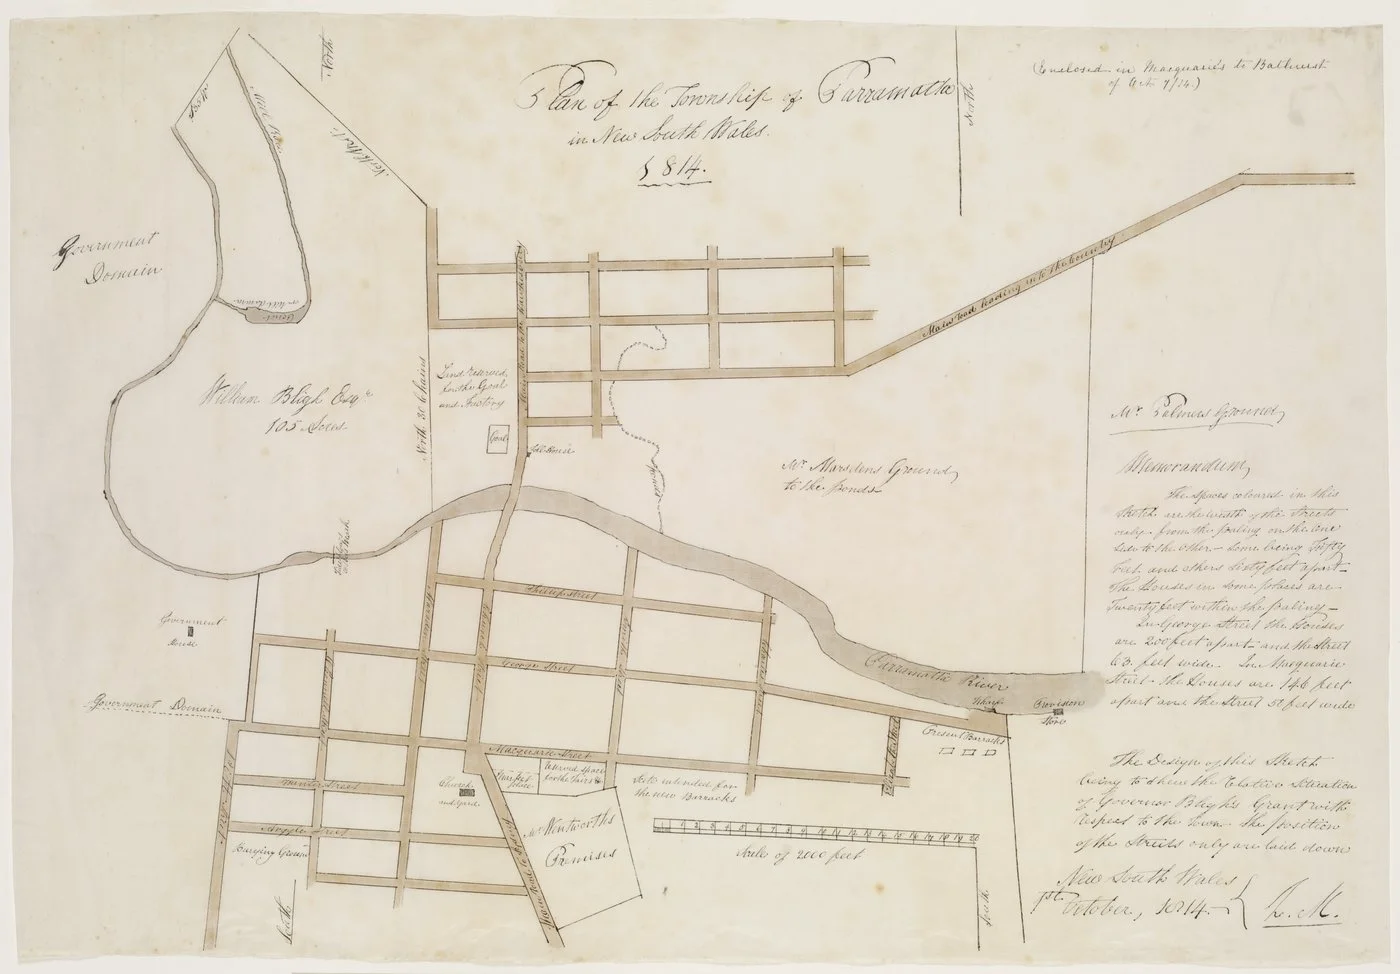 Plan of the Township of Parramatta
in New South Wales.
1814.
(Enclosed in Macquarie's to Bathurst
of Oct 7/14.)
North
North
Government
Domain
William Bligh Esqre
105 Acres
North 30 Chains
Land reserved
for the Goal
and Factory
Goal
Main Road leading into the Country
Mr Marsdens Ground,
to the ponds
Ponds
Mr Palmers Ground,
Memorandum,
The Spaces coloured in this
Sketch are the width of the Streets
only from the paling on the one
side to the other – some being Fifty
feet and others Sixty feet apart –
The Houses in some places are
Twenty feet within the paling –
In George Street the Houses
are 200 feet apart and the Street
63 feet wide. In Macquarie
Street the Houses are 146 feet
apart and the Street 50 feet wide
The Design of this Sketch
being to shew the Relative Situation
of Governor Bligh's Grant with
respect to the Town the position
of the Streets only are laid down
New South Wales
1st October, 1814.
L. M.
Government
House
Government Domain
Phillip Street
George Street
Macquarie Street
Hunter Street
Argyle Street
Parramatta River
Wharf
Provision
Store
Present Barracks
Church
and Yard
Market
Place
reserved space
for the Fairs &c
Site intended for
the new Barracks
Mr Wentworths
Premises
Burying Ground
Main Road to Sydney
Scale of 2000 feet
1 2 3 4 5 6 7 8 9 10 11 12 13 14 15 16 17 18 19 20
South
South